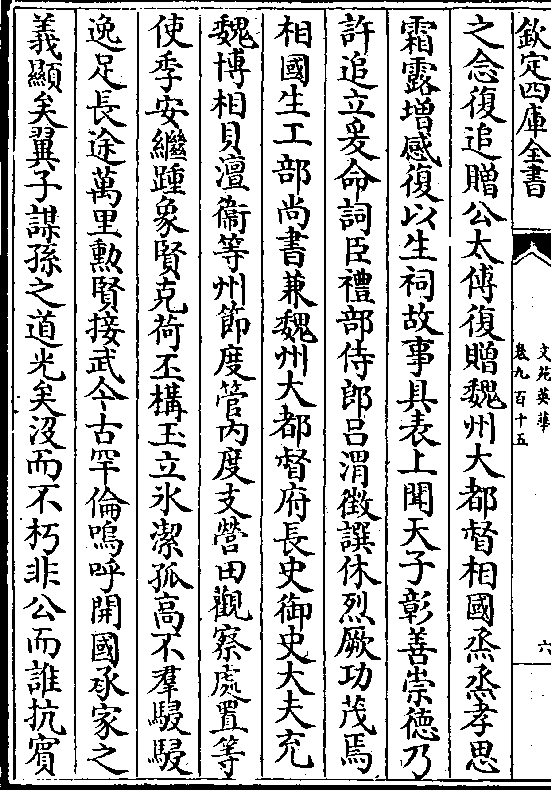 欽定四庫全書
文苑英華
卷九百十五
六
之念復追贈公太傅復贈魏州大都督相國烝烝孝思
霜露増感復以生祠故事具表上聞天子彰善崇德乃
許追立爰命詞臣禮部侍郎吕渭徴譔休烈厥功茂焉
相國生工部尚書兼魏州大都督府長史御史大夫充
魏博相貝澶衞等州節度管内度支營田觀察處置等
使季安繼踵象賢克荷丕構玉立氷潔孤高不羣駸駸
逸足長途萬里勲賢接武今古罕倫嗚呼開國承家之
義顯矣翼子謀孫之道光矣沒而不朽非公而誰抗賓